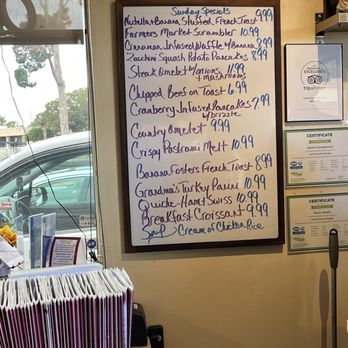 Sunday Specials
Nutella + Banana Stuffed French Toast 9.99
Farmers Market Scrambler 10.99
Cinnamon Infused Waffle w/ Banana 8.99
Zucchini Squash Potato Pancakes 8.99
Steak Omelet w/ onions + mushrooms 11.99
Chipped Beef on Toast 6.99
Cranberry Infused Pancakes w/ Drizzle 7.99
Country Omelet 9.99
Crispy Pastrami Melt 10.99
Banana Fosters French Toast 8.99
Grandma's Turkey Panini 10.99
Quiche - Ham + Swiss 10.99
Breakfast Croissant 9.99
Soup Cream of Chicken Rice
EXCELLENCE
tripadvisor
CERTIFICATE
CERTIFICATE